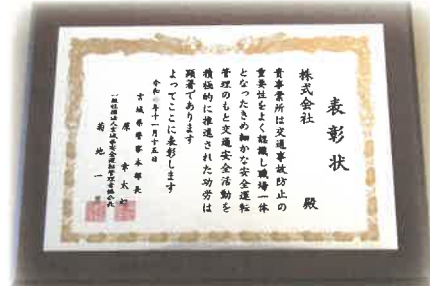 表彰状
株式会社
殿
貴事業所は交通事故防止の
重要性をよく認識し職場一体
となったきめ細かな安全運転
管理のもと交通安全活動を
積極的に推進された功労は
顕著であります
よってここに表彰します
令和 年十一月十五日
宮城県警察本部長
原 幸太郎
一般社団法人宮城県安全運転管理者協会会長
菊地 一